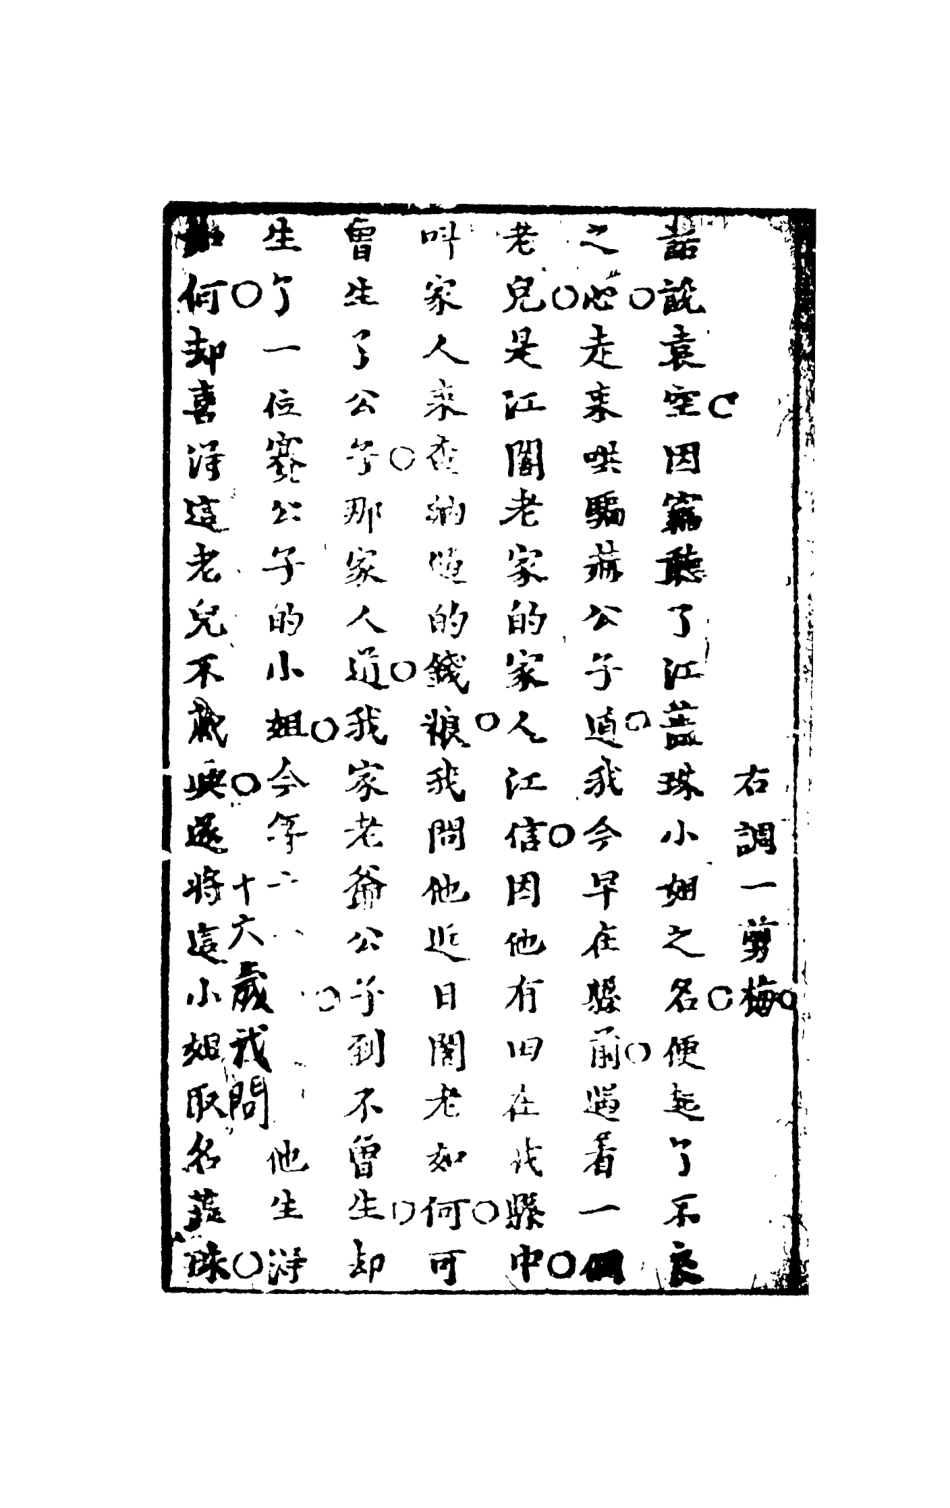 右調一剪梅
話說袁空因竊聽了江蕊珠小姐之名便起了不良
之心走來哄騙赫公子道我今早在縣前遇着一個
老兒是江閣老家的家人江信因他有田在我縣中
叫家人來查納過的錢粮我問他近日閣老如何可
曾生了公子那家人道我家老爺公子到不曾生却
生了一位賽公子的小姐今年十六歲我問他生得
如何却喜得這老兒不藏興遂將這小姐取名蕊珠